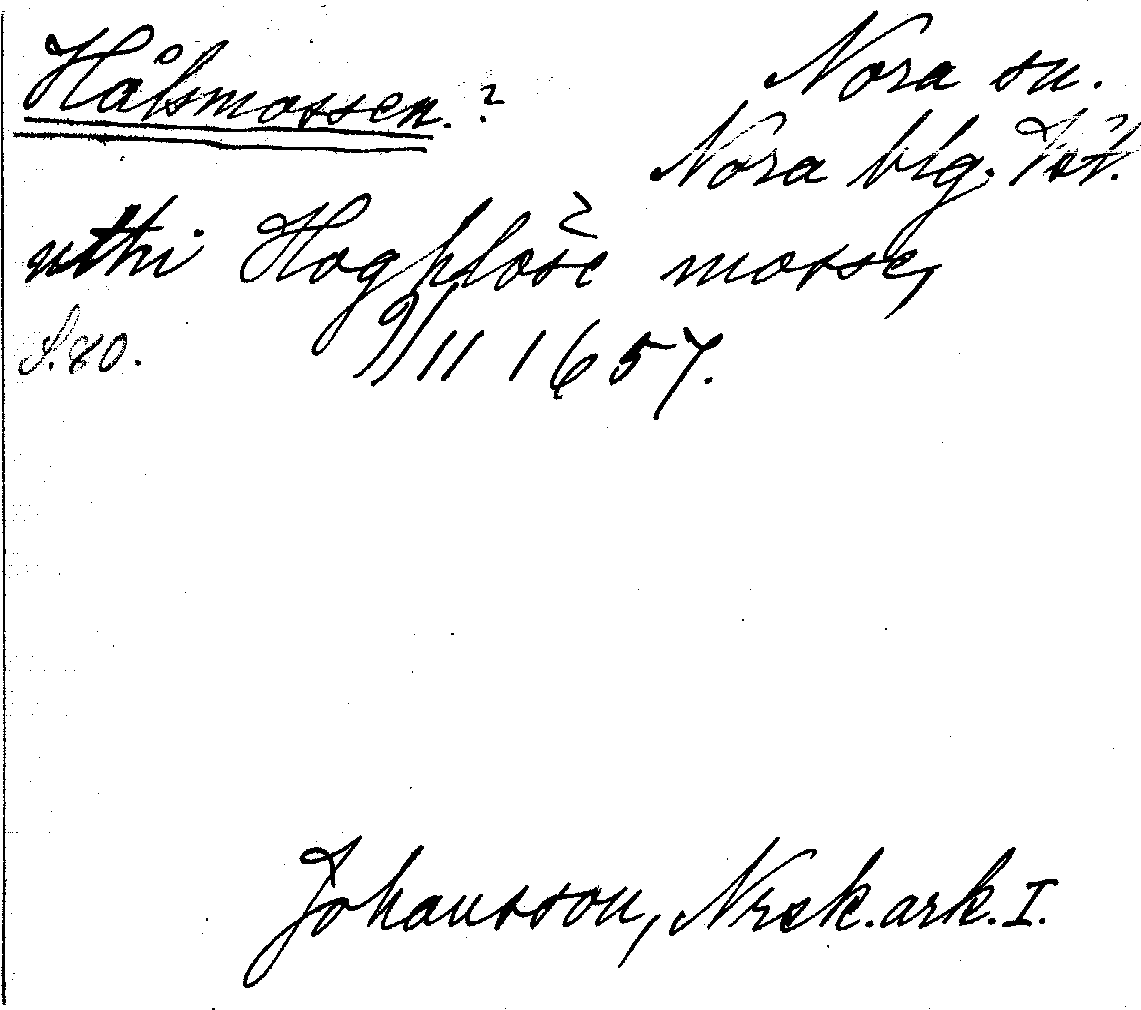 Hålsmossen. ?
Nora sn.
Nora blg. Vstl.
uthi Hogklose mosse,
S. 80. 9/11 1657.
Johansson, Norask. ark. I.